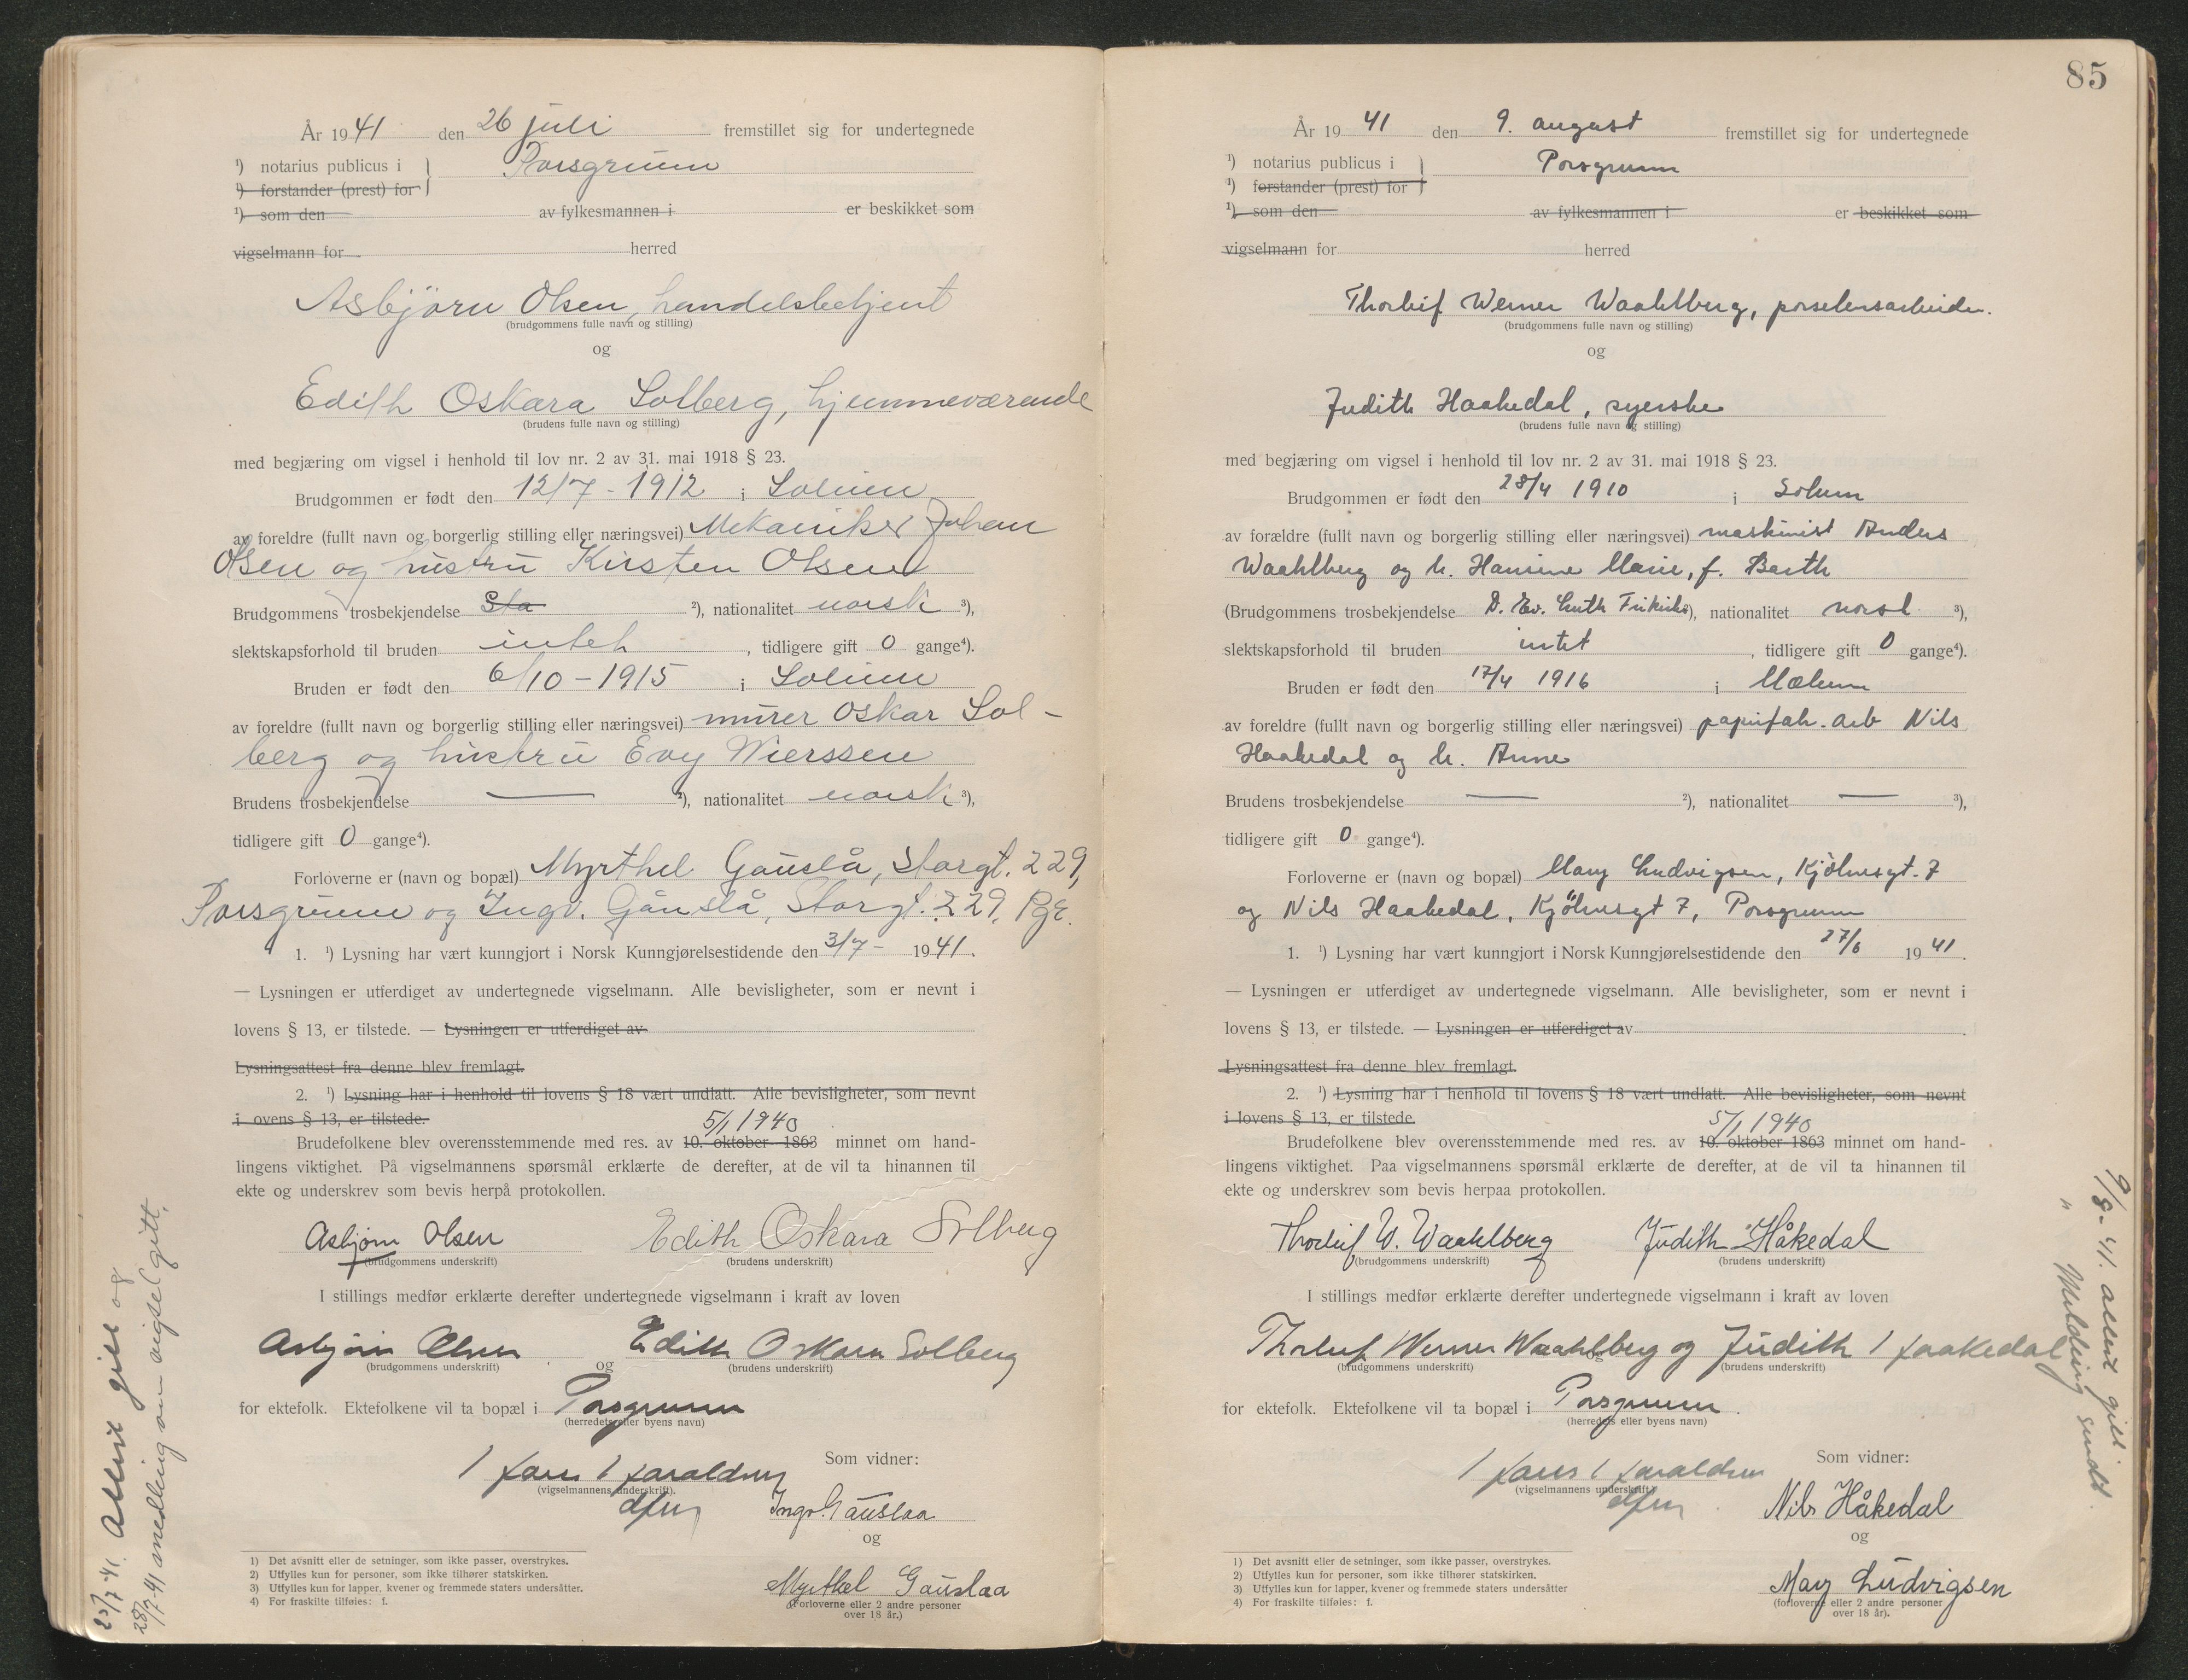 År 1941 den 26 juli fremstillet sig for undertegnede
¹) notarius publicus i } Porsgrunn
¹) forstander (prest) for
¹) som den av fylkesmannen i er beskikket som
vigselmann for herred
Asbjörn Olsen, handelsbetjent
(brudgommens fulle navn og stilling)
og
Edith Oskara Solberg, hjemmeværende
(brudens fulle navn og stilling)
med begjæring om vigsel i henhold til lov nr. 2 av 31. mai 1918 § 23.
Brudgommen er født den 12/7 - 1912 i Solum
av foreldre (fullt navn og borgerlig stilling eller næringsvei) Mekaniker Johan
Olsen og hustru Kirsten Olsen
Brudgommens trosbekjendelse Sta ²), nationalitet norsk ³),
slektskapsforhold til bruden intet, tidligere gift 0 gange⁴).
Bruden er født den 6/10 - 1915 i Solum
av foreldre (fullt navn og borgerlig stilling eller næringsvei) murer Oskar Sol-
berg og hustru Evy Wierssen
Brudens trosbekjendelse — ²), nationalitet norsk ³),
tidligere gift 0 gange⁴).
Forloverne er (navn og bopæl) Myrthel Gauslå, Storgt. 229,
Porsgrunn og Ingv. Gauslå, Storgt. 229, Pgr.
1. ¹) Lysning har vært kunngjort i Norsk Kunngjørelsestidende den 3/7 - 1941.
— Lysningen er utferdiget av undertegnede vigselmann. Alle bevisligheter, som er nevnt i
lovens § 13, er tilstede. — Lysningen er utferdiget av
Lysningsattest fra denne blev fremlagt.
2. ¹) Lysning har i henhold til lovens § 18 vært undlatt. Alle bevisligheter, som nevnt
i ovens § 13, er tilstede.
5/1 1940
Brudefolkene blev overensstemmende med res. av 10. oktober 1863 minnet om hand-
lingens viktighet. På vigselmannens spørsmål erklærte de derefter, at de vil ta hinannen til
ekte og underskrev som bevis herpå protokollen.
Asbjørn Olsen Edith Oskara Solberg
(brudgommens underskrift) (brudens underskrift)
I stillings medfør erklærte derefter undertegnede vigselmann i kraft av loven
Asbjörn Olsen og Edith Oskara Solberg
(brudgommens underskrift) (brudens underskrift)
for ektefolk. Ektefolkene vil ta bopæl i Porsgrunn
(herredets eller byens navn)
Hans Haraldsen
(vigselmannens underskrift).
dfm
Som vidner:
Ingv. Gauslaa
og
Myrthel Gauslaa
(Forloverne eller 2 andre personer
over 18 år.)
1) Det avsnitt eller de setninger, som ikke passer, overstrykes.
2) Utfylles kun for personer, som ikke tilhører statskirken.
3) Utfylles kun for lapper, kvener og fremmede staters undersåtter.
4) For fraskilte tilføies: f.
25/7-41. Attest gitt og
28/7-41 melding om vigsel gitt.
85
År 1941 den 9. august fremstillet sig for undertegnede
¹) notarius publicus i } Porsgrunn
¹) forstander (prest) for
¹) som den av fylkesmannen i er beskikket som
vigselmann for herred
Thorleif Werner Waahlberg, porselensarbeider.
(brudgommens fulle navn og stilling)
og
Judith Haakedal, syerske
(brudens fulle navn og stilling)
med begjæring om vigsel i henhold til lov nr. 2 av 31. mai 1918 § 23.
Brudgommen er født den 28/4 1910 i Solum
av forældre (fullt navn og borgerlig stilling eller næringsvei) maskinist Anders
Waahlberg og h. Hansine Marie, f. Barth
(Brudgommens trosbekjendelse D. Ev. Luth Frikirke ), nationalitet norsk ³),
slektskapsforhold til bruden intet, tidligere gift 0 gange⁴).
Bruden er født den 17/4 1916 i Mælum
av foreldre (fullt navn og borgerlig stilling eller næringsvei) papirfab. arb Nils
Haakedal og h. Anne
Brudens trosbekjendelse — ²), nationalitet — ³),
tidligere gift 0 gange⁴).
Forloverne er (navn og bopæl) Mary Ludvigsen, Kjölnesgt. 7
og Nils Haakedal, Kjölnesgt 7, Porsgrunn
1. ¹) Lysning har vært kunngjort i Norsk Kunngjørelsestidende den 27/6 1941.
— Lysningen er utferdiget av undertegnede vigselmann. Alle bevisligheter, som er nevnt i
lovens § 13, er tilstede. — Lysningen er utferdiget av
Lysningsattest fra denne blev fremlagt.
2. ¹) Lysning har i henhold til lovens § 18 vært undlatt. Alle bevisligheter, som nevnt
i lovens § 13, er tilstede.
5/1 1940
Brudefolkene blev overensstemmende med res. av 10. oktober 1863 minnet om hand-
lingens viktighet. Paa vigselmannens spørsmål erklærte de derefter, at de vil ta hinannen til
ekte og underskrev som bevis herpaa protokollen.
Thorleif W. Waahlberg Judith Håkedal
(brudgommens underskrift) (brudens underskrift)
I stillings medfør erklærte derefter undertegnede vigselmann i kraft av loven
Thorleif Werner Waahlberg og Judith Haakedal
(brudgommens underskrift) og (brudens underskrift)
for ektefolk. Ektefolkene vil ta bopæl i Porsgrunn.
(herredets eller byens navn)
Hans Haraldsen
(vigselmannens underskrift)
dfm
Som vidner:
Nils Håkedal
og
Mary Ludvigsen
(forloverne eller 2 andre personer
over 18 år).
1) Det avsnitt eller de setninger, som ikke passer, overstrykes.
2) Utfylles kun for personer, som ikke tilhører statskirken.
3) Utfylles kun for lapper, kvener og fremmede staters undersåtter
4) For fraskilte tilføies: f.
9/8-41. attest gitt
" Melding sendt.